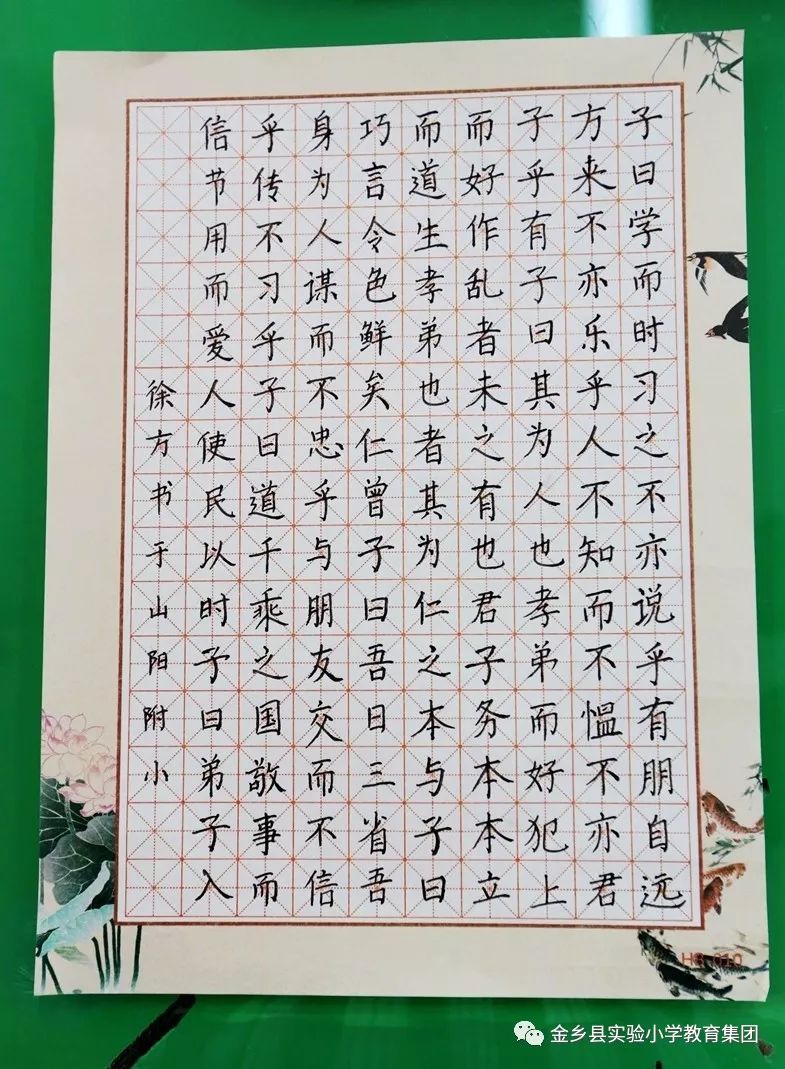 子曰学而时习之不亦说乎有朋自远
方来不亦乐乎人不知而不愠不亦君
子乎有子曰其为人也孝弟而好犯上
而好作乱者未之有也君子务本本立
而道生孝弟也者其为仁之本与子曰
巧言令色鲜矣仁曾子曰吾日三省吾
身为人谋而不忠乎与朋友交而不信
乎传不习乎子曰道千乘之国敬事而
信节用而爱人使民以时子曰弟子入
徐方书于山阳附小
金乡县实验小学教育集团